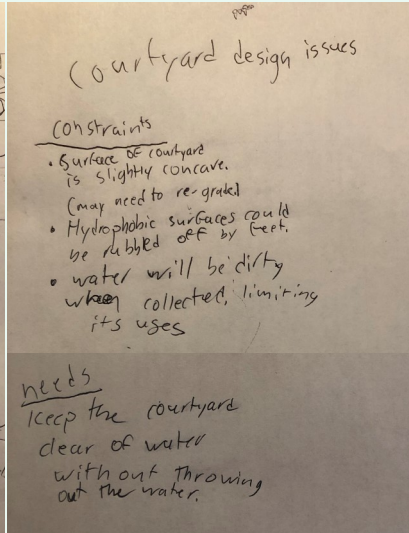 courtyard design issues
constraints
• Surface of courtyard
is slightly concave.
(may need to re-graded
• Hydrophobic surfaces could
be rubbled off by feet.
• water will be dirty
when collected, limiting
its uses
needs
keep the courtyard
clear of water
without throwing
out the water.